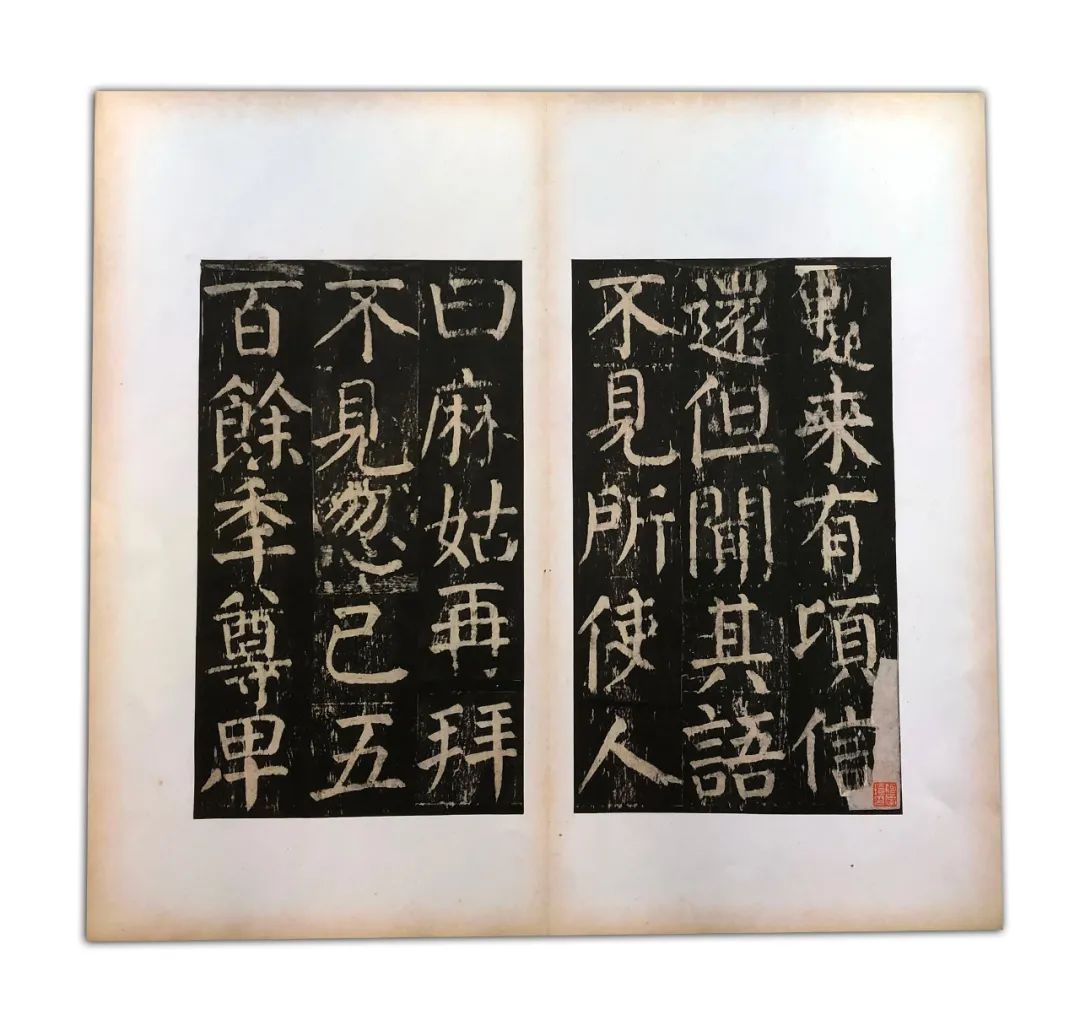 來有頃信
還但聞其語
不見所使人
曰麻姑再拜
不見忽已五
百餘秊尊卑